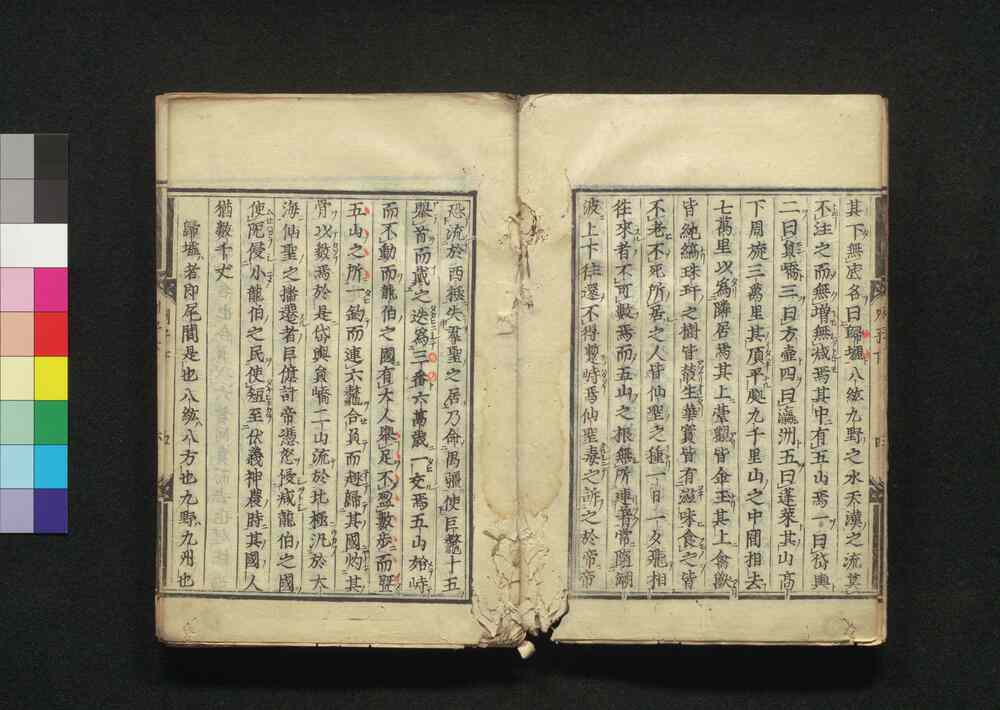 其下無底名曰歸墟八紘九野之水天漢之流莫
不注之而無增無減焉其中有五山焉一曰岱輿
二曰員嶠三曰方壷四曰瀛洲五曰蓬萊其山高
下周旋三萬里其頂平處九千里山之中間相去
七萬里以爲隣居焉其上臺觀皆金玉其上禽獸
皆純縞珠玕之樹皆叢生華實皆有滋味食之皆
不老不死所居之人皆仙聖之種一日一夕飛相
徃來者不可數焉而五山之根無所連著常隨潮
波上下徃還不得蹔峙焉仙聖毒之訴之於帝帝
恐流於西極失羣聖之居乃命禺彊使巨鼇十五
舉首而戴之迭爲三番六萬歲一交焉五山始峙
而不動而龍伯之國有大人舉足不盈數步而曁
五山之所一釣而連六鼇合負而趣歸其國灼其
骨以數焉於是岱輿員嶠二山流於北極沉於大
海仙聖之播遷者巨億計帝憑怒侵減龍伯之國
使阨侵小龍伯之民使短至伏羲神農時其國人
猶數千丈
歸墟者即尾閭是也八紘八方也九野九州也